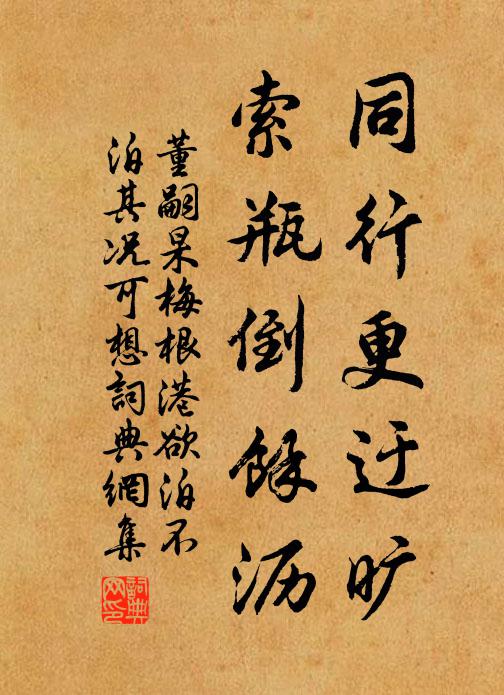 同行更迂旷
索瓶倒馀沥
董嗣杲梅根港欲泊不
泊其况可想词典網集
詞典
网印